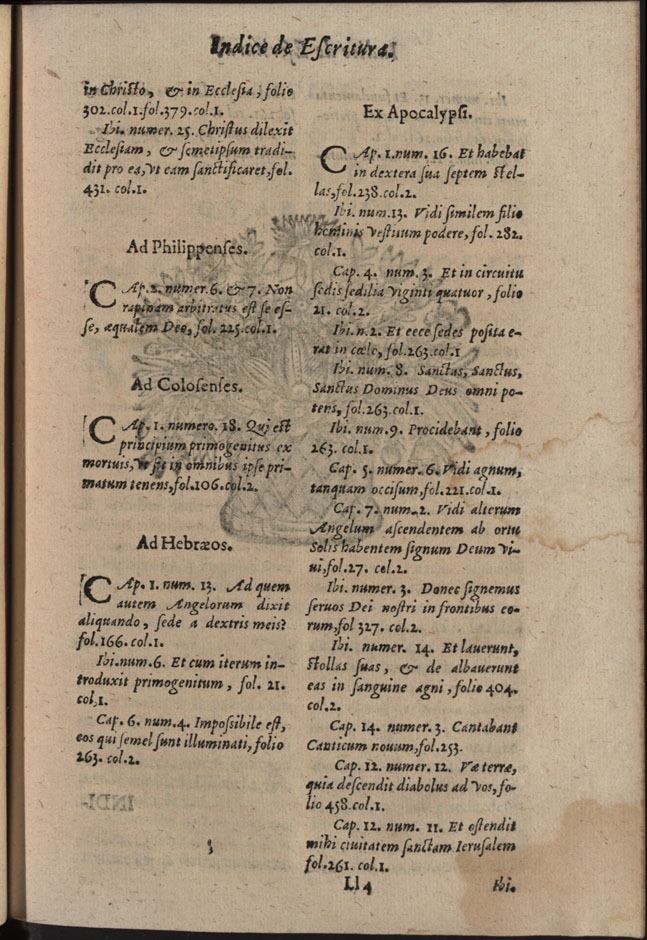 Indice de Eſcritura.
in Chriſto, & in Eccleſia, folio
302.col.1.fol.379.col.1.
Ibi. numer. 25. Chriſtus dilexit
Eccleſiam, & ſemetipſum tradi-
dit pro ea, vt eam ſanctificaret, fol.
431. col.1.
Ad Philippenſes.
CAp.2. numer.6. & 7. Non
rapinam arbitratus eſt ſe eſ-
ſe, æqualem Deo, fol. 225.col.1.
Ad Coloſenſes.
CAp. 1. numero. 18. Qui eſt
principium primogenitus ex
mortuis, vt ſit in omnibus ipſe pri-
matum tenens, fol.106.col.2.
Ad Hebræos.
CAp. 1. num. 13. Ad quem
autem Angelorum dixit
aliquando, ſede a dextris meis?
fol.166. col.1.
Ibi.num.6. Et cum iterum in-
troduxit primogenitum, fol. 21.
col,1.
Cap. 6. num.4. Impoſſibile eſt,
eos qui ſemel ſunt illuminati, folio
263. col.2.
Ex Apocalypſi.
CAp. 1.num. 16. Et habebat
in dextera ſua ſeptem ſtel-
las, fol.238.col.2.
Ibi. num.13. Vidi ſimilem filio
hominis veſtitum podere, fol. 282.
col.1.
Cap. 4. num. 3. Et in circuitu
ſedis ſedilia viginti quatuor, folio
21. col.2.
Ibi.n.2. Et ecce ſedes poſita e-
rat in cœlo, fol.263.col.1
Ibi. num. 8. Sanctus, Sanctus,
Sanctus Dominus Deus omni po-
tens, fol.263.col.1.
Ibi. num.9. Procidebant, folio
263. col.1.
Cap. 5. numer. 6. Vidi agnum,
tanquam occiſum, fol.221.col.1.
Cap. 7. num.2. Vidi alterum
Angelum aſcendentem ab ortu
Solis habentem ſignum Deum vi-
ui, fol.27. col.2.
Ibi. numer. 3. Donec ſignemus
ſeruos Dei noſtri in frontibus eo-
rum, fol 327. col.2.
Ibi. numer. 14. Et lauerunt,
ſtollas ſuas, & de albauerunt
eas in ſanguine agni, folio 404.
col.2.
Cap. 14. numer. 3. Cantabant
Canticum nouum, fol.253.
Cap. 12. numer. 12. Væ terræ,
quia deſcendit diabolus ad vos, fo-
lio 458.col.1.
Cap. 12. num. 11. Et oſtendit
mihi ciuitatem ſanctam Ieruſalem
fol.261. col.1.
Ll 4
Ibi.